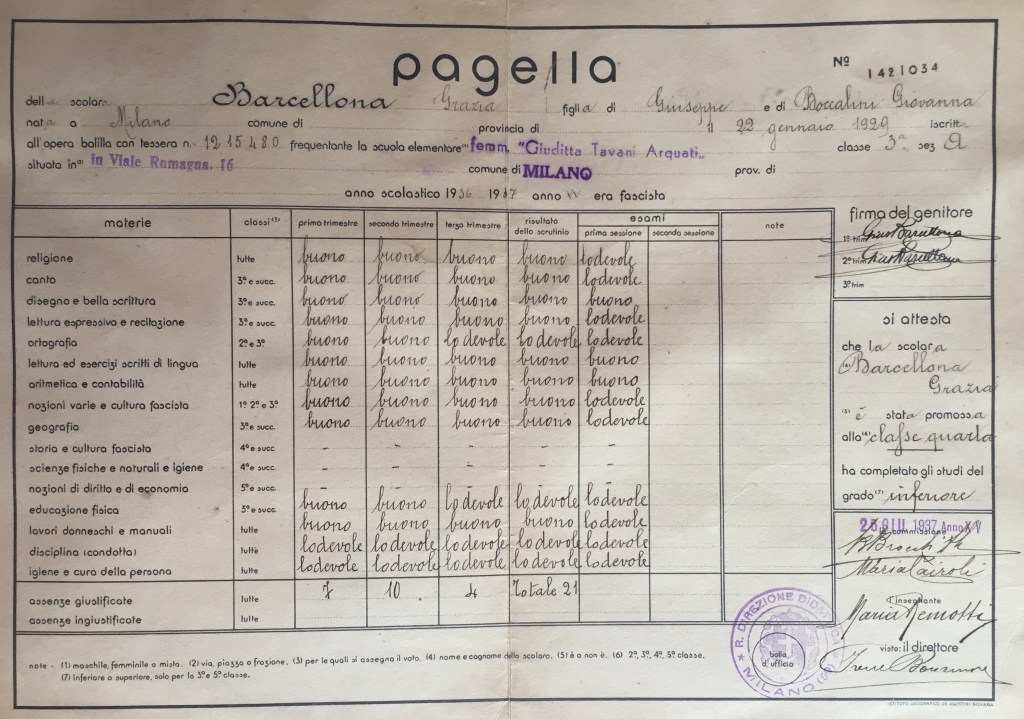 pagella
Nº 1421034
della scolara Barcellona Grazia figlia di Giuseppe e di Boccalini Giovanna
nata a Milano comune di provincia di il 22 gennaio 1929 iscritta
all'opera balilla con tessera n. 1215480 frequentante la scuola elementare (1) femm. "Giuditta Tavani Arquati„ classe 3ª sez A
situata in (2) in Viale Romagna, 16 comune di MILANO prov. di
anno scolastico 1936 1937 anno XV era fascista
materie classi (3) primo trimestre secondo trimestre terzo trimestre risultato dello scrutinio esami prima sessione seconda sessione note
religione tutte buono buono buono buono lodevole
canto 3ª e succ. buono buono buono buono lodevole
disegno e bella scrittura 3ª e succ. buono buono buono buono buono
lettura espressiva e recitazione 3ª e succ. buono buono buono buono lodevole
ortografia 2ª e 3ª buono buono lodevole lodevole lodevole
lettura ed esercizi scritti di lingua tutte buono buono buono buono buono
aritmetica e contabilità tutte buono buono buono buono buono
nozioni varie e cultura fascista 1ª 2ª e 3ª buono buono buono buono lodevole
geografia 3ª e succ. buono buono buono buono lodovole
storia e cultura fascista 4ª e succ. - - - - -
scienze fisiche e naturali e igiene 4ª e succ. - - - - -
nozioni di diritto e di economia 5ª e succ. - - - - -
educazione fisica 3ª e succ. buono buono lodevole lodevole lodevole
lavori donneschi e manuali tutte buono buono buono buono lodevole
disciplina (condotta) tutte lodevole lodevole lodevole lodevole lodevole
igiene e cura della persona tutte lodevole lodevole lodevole lodevole lodevole
assenze giustificate tutte 7 10 4 Totale 21
assenze ingiustificate tutte
firma del genitore
1º trim Barcellona
2º trim Barcellona
3º trim
si attesta
che la scolara
(4) Barcellona
Grazia
(5) è stata promossa
alla (6) classe quarta
ha completato gli studi del
grado (7) inferiore
25 GIU. 1937 Anno XV
la commissione
Maria Cairoli
l'insegnante
Maria Remotti
visto: il direttore
Irene
R. DIREZIONE DIDATTICA
MILANO
bollo d'ufficio
note - (1) maschile, femminile o mista. (2) via, piazza o frazione, (3) per le quali si assegna il voto. (4) nome e cognome dello scolaro, (5) è o non è. (6) 2ª, 3ª, 4ª, 5ª classe.
(7) inferiore o superiore, solo per la 3ª e 5ª classe.
ISTITUTO GEOGRAFICO DE AGOSTINI - NOVARA